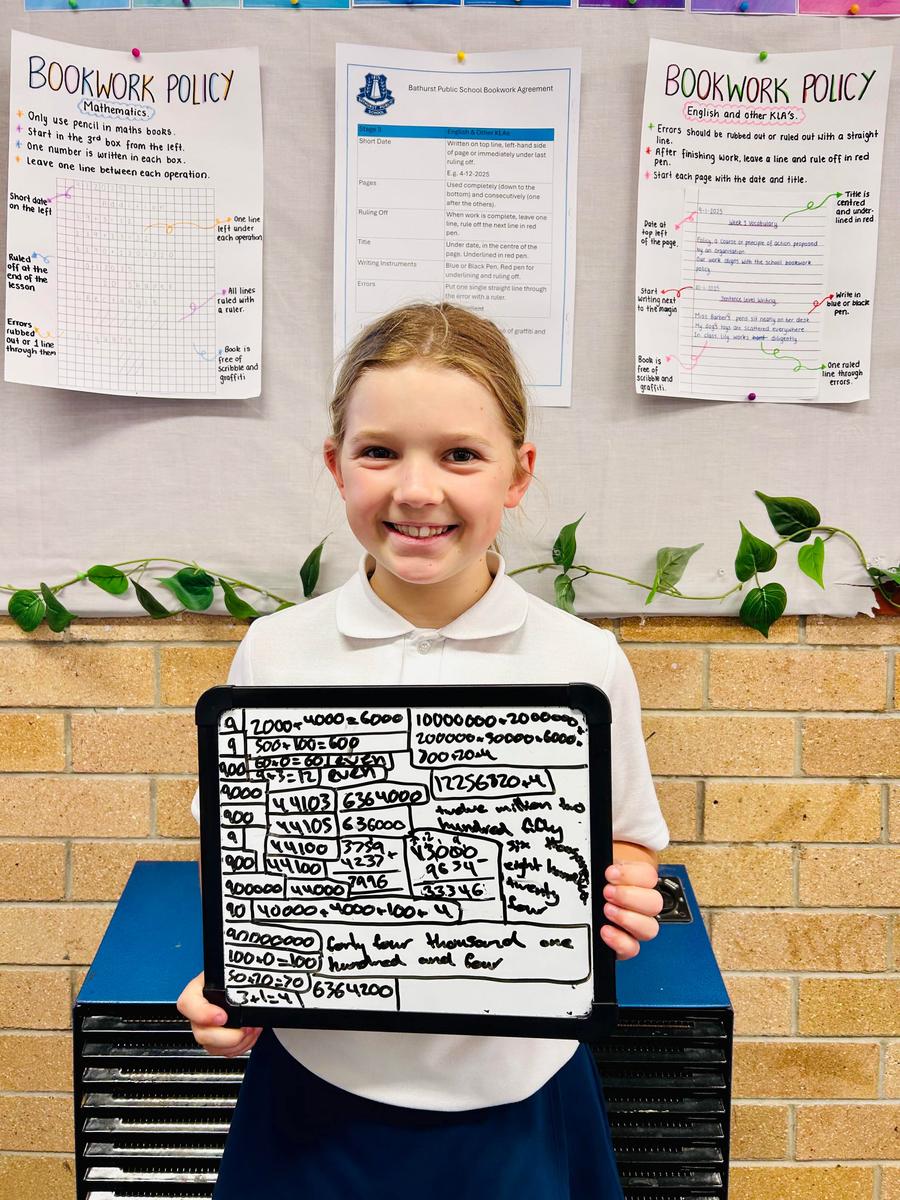 BOOKWORK POLICY
Mathematics.
Only use pencil in maths books.
Start in the 3rd box from the left.
One number is written in each box.
Leave one line between each operation.
Short date on the left
One line left under each operation
Ruled off at the end of the lesson
All lines ruled with a ruler.
Errors rubbed out or 1 line through them
Book is free of scribble and graffiti
Bathurst Public School Bookwork Agreement
Stage 3
English & Other KLAs
Short Date
Written on top line, left-hand side of page or immediately under last ruling off.
E.g. 4-12-2025
Pages
Used completely (down to the bottom) and consecutively (one after the others).
Ruling Off
When work is complete, leave one line, rule off the next line in red pen.
Title
Under date, in the centre of the page. Underlined in red pen.
Writing Instruments
Blue or Black Pen, Red pen for underlining and ruling off.
Errors
Put one single straight line through the error with a ruler.
of graffiti and
BOOKWORK POLICY
English and other KLA's.
Errors should be rubbed out or ruled out with a straight line.
After finishing work, leave a line and rule off in red pen.
Start each page with the date and title.
Title is centred and underlined in red
Date at top left of the page.
Week 1 Vocabulary
Policy: a course or principle of action proposed
by an organisation.
Our work aligns with the school bookwork
policy.
Start writing next to the margin
Sentence level Writing
Write in blue or black pen.
Miss Barber's pens sit neatly on her desk
My dog's toys are scattered everywhere
In class, Lily works diligently
Book is free of scribble and graffiti.
One ruled line through errors.
9
2000+4000=6000
9
500+100=600
900
60+0=60 even
9+3=12 even
9000
900
9
900
900000
90
90000000
100+0=100
50+20=70
3+1=4
44103
44105
44100
44100
44000
6364000
636000
3759+
4237
7996
43000
9654-
33346
40000+4000+100+4
forty four thousand one
hundred and four
6364200
10000000+2000000+
200000+50000+6000+
800+20+4
12256820+4
twelve million two
hundred fifty
six thousand
eight hundred
twenty
four